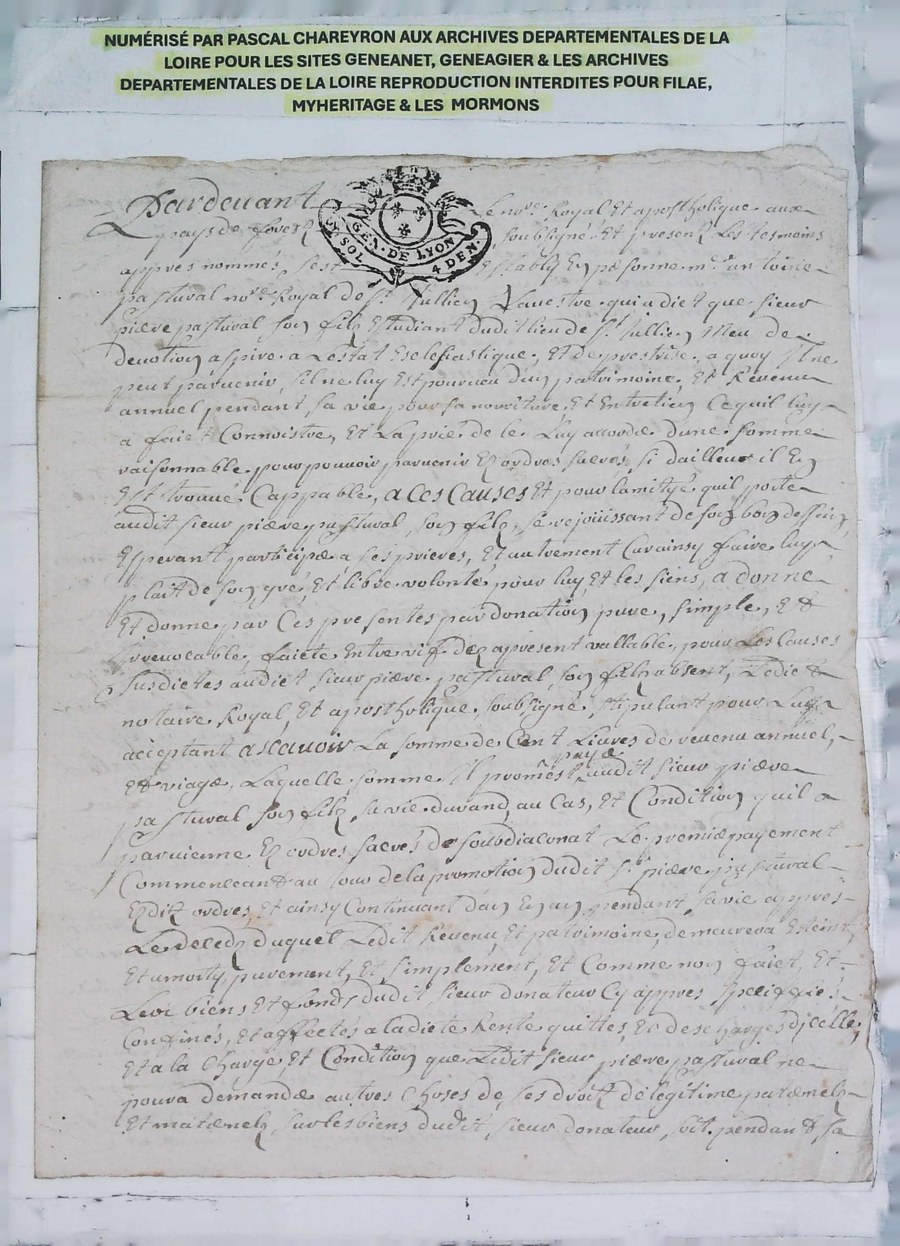 NUMÉRISÉ PAR PASCAL CHAREYRON AUX ARCHIVES DEPARTEMENTALES DE LA
LOIRE POUR LES SITES GENEANET, GENEAGIER & LES ARCHIVES
DEPARTEMENTALES DE LA LOIRE REPRODUCTION INTERDITES POUR FILAE,
MYHERITAGE & LES MORMONS
GEN. DE LYON
SOL 4 DEN.
Pardevant Le no.re Royal Et apostholique aux
pays de forestz soubsigné Et presentz Les tesmoins
appres nommés, s'est Estably En personne m.e antoine
pasturval no.re Royal de S.t Jullien Vauestre qui a dict que sieur
pierre pasturval son filz Estudiant dudit lieu de S.t Jullien Meu de
devotion aspire a L'estat Eclesiastique, Et de prestrise, a quoy Il ne
peut parvenir, s'il ne luy Est pourveu d'un patrimoine, Et Revenu
annuel pendant sa vie pour sa nourriture, Et Entretien Ce quil luy
a faict Connoistre, Et La prié de le Luy accorder d'une somme
raisonnable pour pouvoir parvenir Ez ordres sacrés, si dailleur il En
Est trouué Cappable, a Ces Causes Et pour lamityé quil porte
audit sieur pierre pasturval, son filz, se rejouissant de son bon dessein,
Esperant participer a ses prieres, Et autrement Car ainsy faire luy
plait de son gré, Et libre volonté pour luy, Et les siens, a donné
Et donne par Ces presentes par donation pure, simple, Et
Irrevocable, faicte Entre vif dez apresent vallable, pour Les Causes
susdictes audict sieur pierre pasturval, son filz absent, Ledict
notaire Royal, Et apostholique soubsigné, stipulant pour Luy
acceptant ascauoir La somme de Cent Liures de revenu annuel,
Et viager, Laquelle somme Il promest payer audit sieur pierre
pasturval son filz, sa vie durand, au Cas, Et Condition quil
parvienne Ez ordres sacrés de soubdiaconat Le premier payement
Commenceant au Jour de la promotion dudit s.r pierre pasturval
Ezdit ordres, Et ainsy Continuant d'an En an pendant sa vie appres
Le decedz duquel Ledit Revenu, Et patrimoine, demeurera Esteint,
Et amorty, purement, Et simplement, Et Comme non faict, Et
Les biens Et fonds dudit sieur donateur Cy appres speciffiés
Confinés, Et affectés a ladicte Rente quittes, Et deschargés d'jcelle,
Et a la Charge Et Condition que Ledit sieur pierre pasturval ne
poura demander autres Choses de ses droitz de legitime paternelz
Et maternelz sur les biens dudit sieur donateur, soit pendant sa